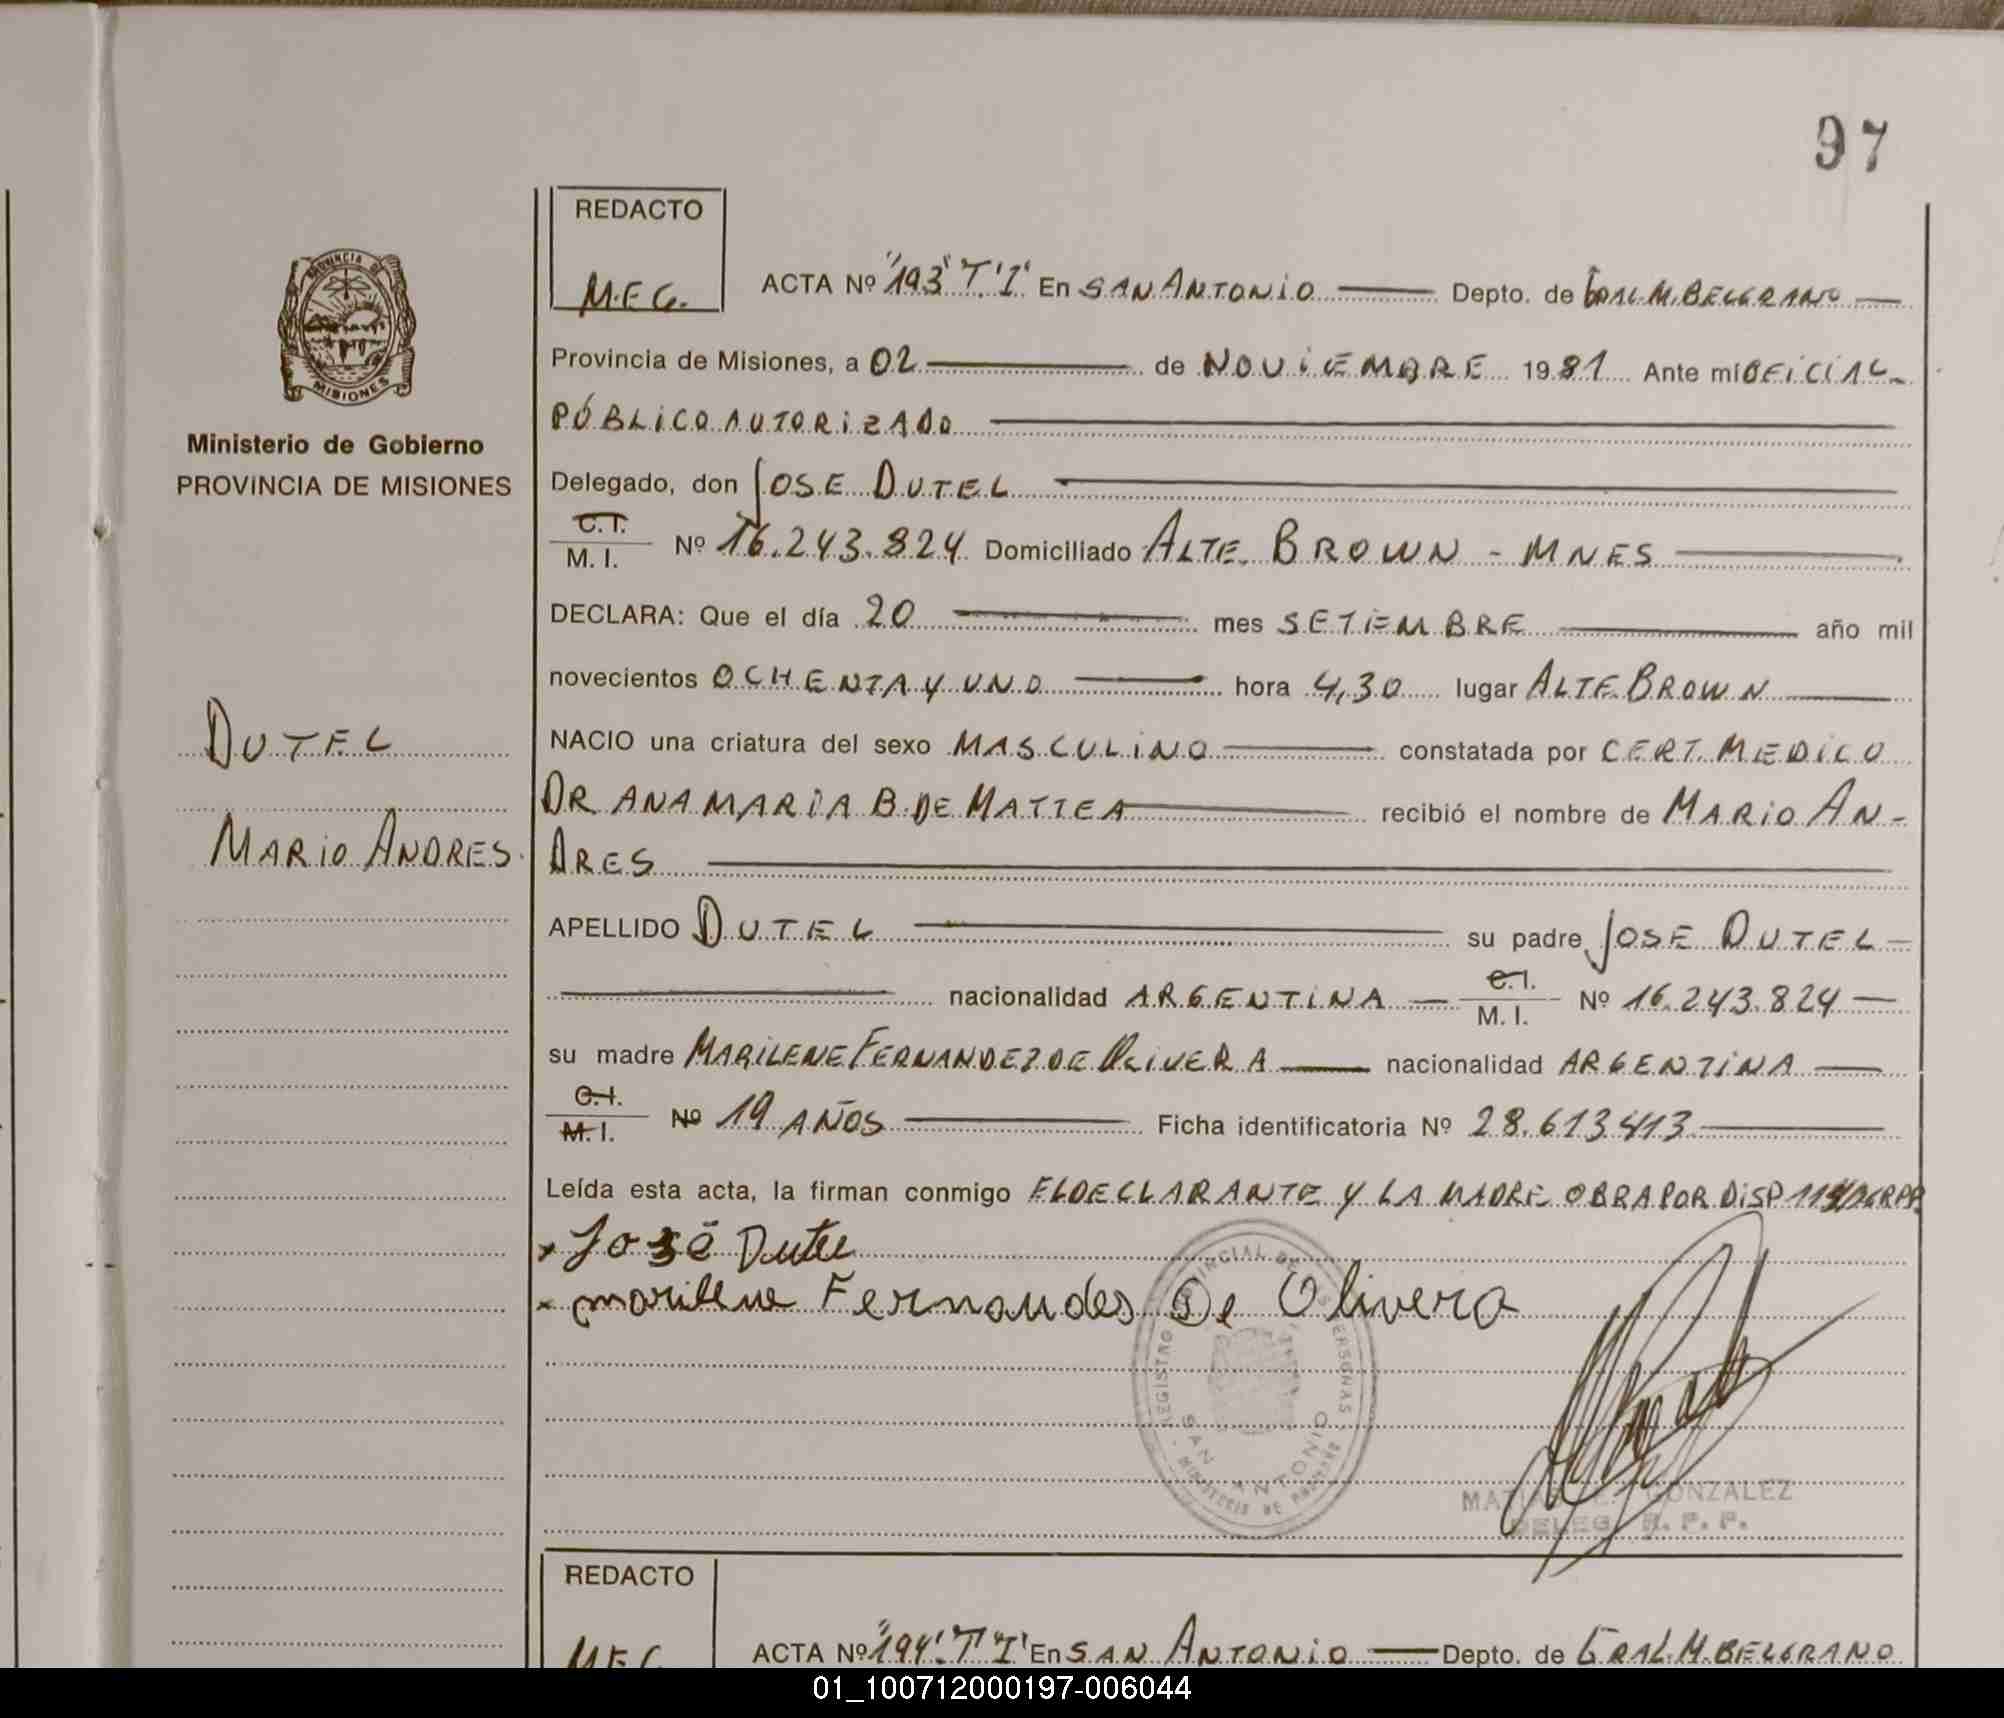 97
REDACTO
M.E.G.
ACTA Nº "193" "T" "I" En SAN ANTONIO Depto. de GRAL M. BELGRANO
Provincia de Misiones, a 02 de NOVIEMBRE 1981 Ante mi OFICIAL
PÚBLICO AUTORIZADO
Delegado, don JOSE DUTEL
C.I.
M. I. Nº 16.243.824 Domiciliado ALTE. BROWN - MNES
DECLARA: Que el día 20 mes SETIEMBRE año mil
novecientos OCHENTA Y UNO hora 4,30 lugar ALTE BROWN
NACIO una criatura del sexo MASCULINO constatada por CERT. MEDICO
DR ANA MARIA B. DE MATTEA recibió el nombre de MARIO AN-
DRES
APELLIDO DUTEL su padre JOSE DUTEL
nacionalidad ARGENTINA C.I. M. I. Nº 16.243.824
su madre MARILENE FERNANDEZ DE OLIVERA nacionalidad ARGENTINA
C.I.
M. I. Nº 19 AÑOS Ficha identificatoria Nº 28.613.413
Leída esta acta, la firman conmigo EL DECLARANTE Y LA MADRE OBRA POR DISP
José Dutel
marilene Fernandes De Olivera
REGISTRO PROVINCIAL DE LAS PERSONAS
SAN ANTONIO
MINISTERIO DE
GONZALEZ
DELEG. R. P. P.
PROVINCIA DE
MISIONES
Ministerio de Gobierno
PROVINCIA DE MISIONES
DUTEL
MARIO ANDRES
REDACTO
M.E.G.
ACTA Nº "194" "T" "I" En SAN ANTONIO Depto. de GRAL. M. BELGRANO
01_100712000197-006044